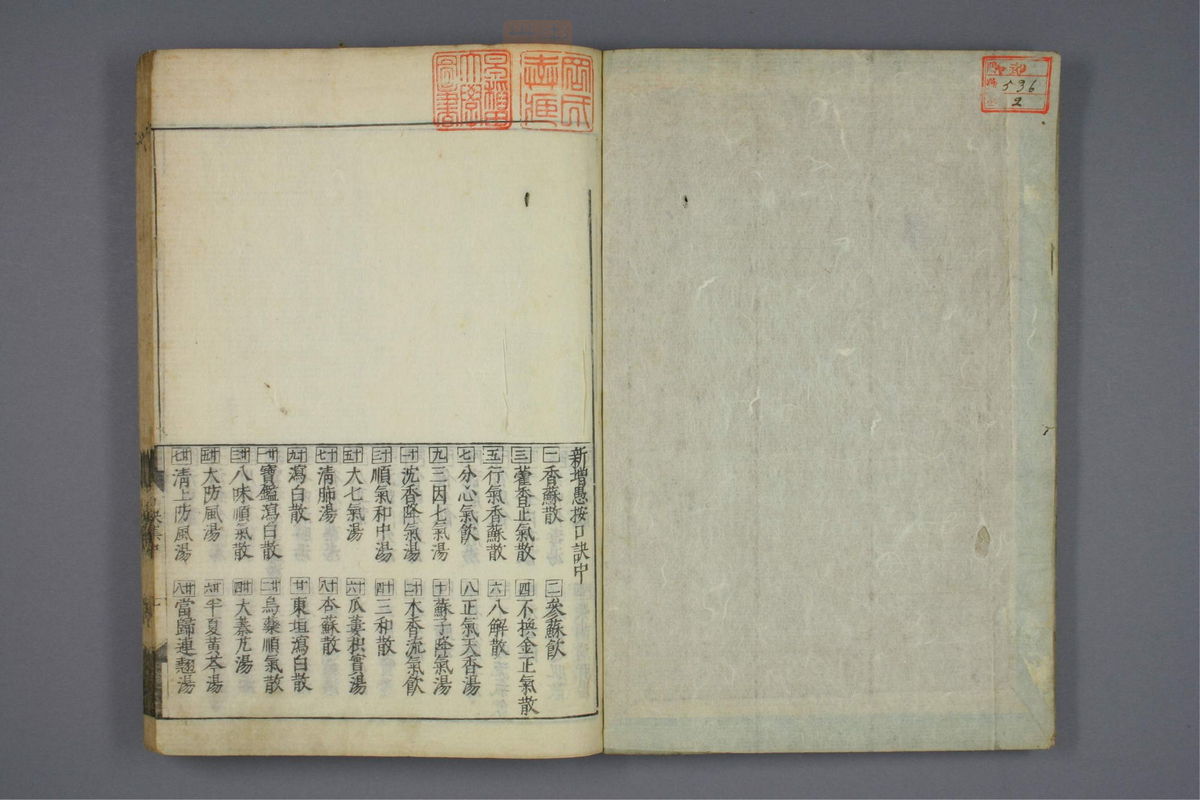 新增愚按口訣中
一香蘇散 二參蘇飲
三藿香正氣散 四不換金正氣散
五行氣香蘇散 六八解散
七分心氣飲 八正氣天香湯
九三因七氣湯 十蘇子降氣湯
十一沈香降氣湯 十二木香流氣飲
十三順氣和中湯 十四三和散
十五大七氣湯 十六瓜蔞枳實湯
十七清肺湯 十八杏蘇散
十九瀉白散 廿東垣瀉白散
廿一寶鑑瀉白散 廿二烏藥順氣散
廿三八味順氣散 廿四大秦艽湯
廿五大防風湯 廿六半夏黃芩湯
廿七清上防風湯 廿八當歸連翹湯
早稲田大學圖書
536
2